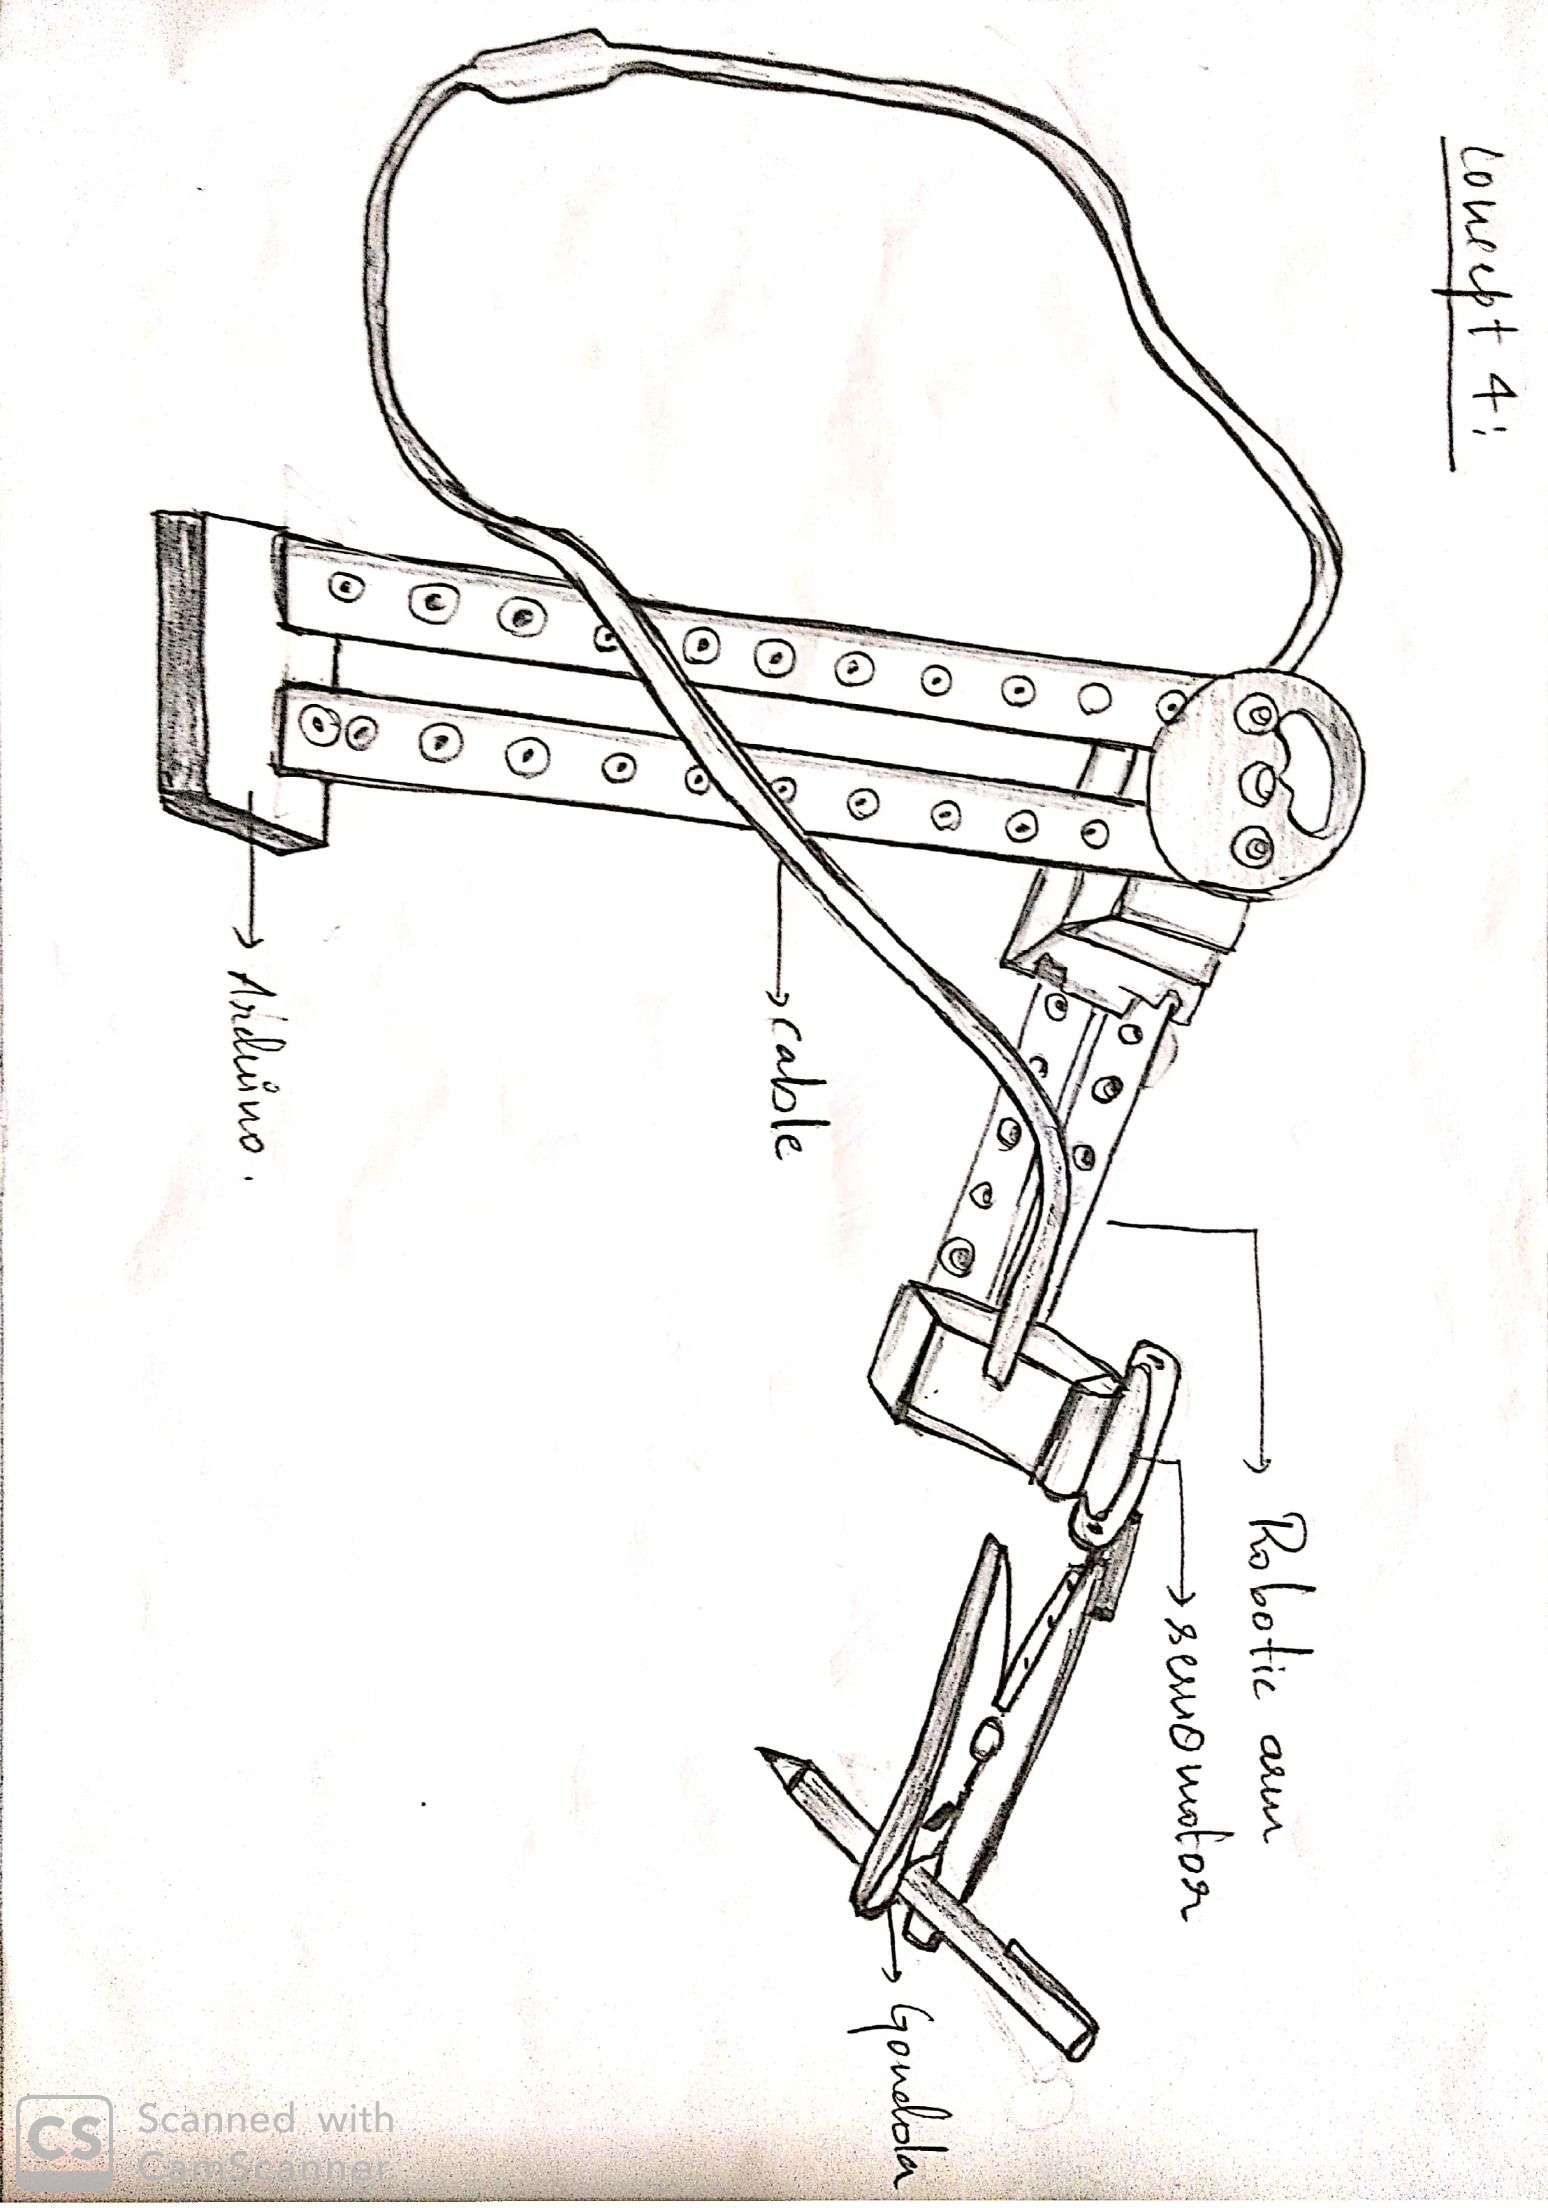 Concept 4:
Robotic arm
servomotor
Gondola
cable
Arduino.
CS Scanned with
CamScanner